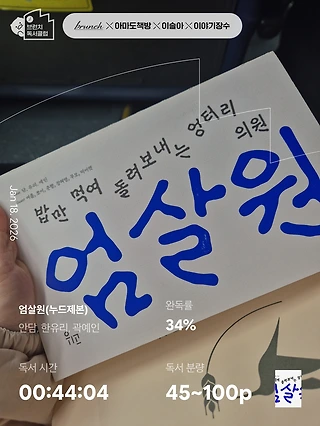 브런치
독서클럽
brunch × 아마도책방 × 이슬아 × 이야기장수
Jan 18, 2026
밥만 먹여 돌려보내는 엉터리
의원
엄살원
엄살원(누드제본)
안담, 한유리, 곽예인
완독률
34%
독서 시간
00:44:04
독서 분량
45~100p